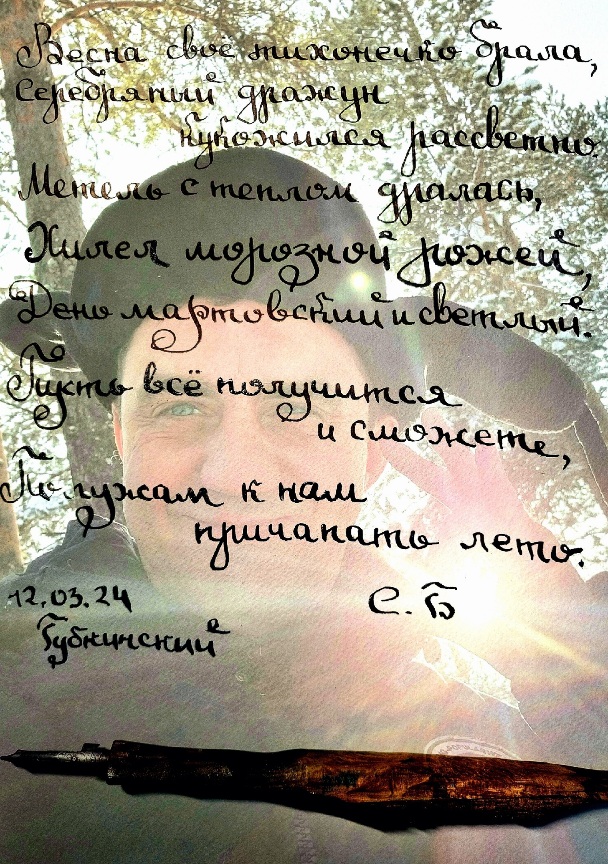 Весна своё тихонечко брала,
Серебряный дражун
кукожился рассветно.
Метель с теплом дралась,
Хилея морозной рожей,
День мартовский и светлый.
Пусть всё получится
и сможете,
По лужам к нам
причапать лето.
12.03.24 С.Б
Губкинский